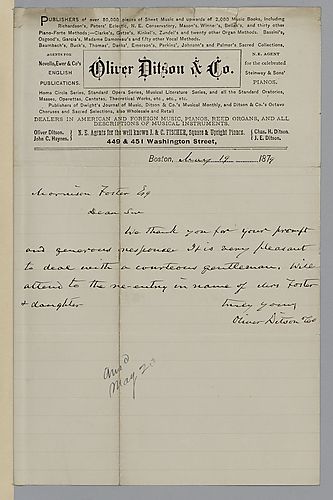 PUBLISHERS of over 50,000 pieces of Sheet Music and upwards of 2,000 Music Books, including
Richardson's, Peters' Eclectic, N. E. Conservatory, Mason's, Winner's, Bellak's, and thirty other
Piano-Forte Methods;—Clarke's, Getze's, Kinkel's, Zundel's and twenty other Organ Methods. Bassini's,
Osgood's, Garcia's, Madame Damoreau's and fifty other Vocal Methods.
Baumbach's, Buck's, Thomas', Danks', Emerson's, Perkins', Johnson's and Palmer's Sacred Collections,
AGENTS FOR
Novello, Ewer & Co's
ENGLISH
PUBLICATIONS.
Oliver Ditson & Co.
N. E. AGENT
for the celebrated
Steinway & Sons'
PIANOS.
Home Circle Series, Standard Opera Series, Musical Literature Series, and all the Standard Oratorios,
Masses, Operettas, Cantatas, Theoretical Works, etc., etc., etc.
Publishers of Dwight's Journal of Music, Ditson & Co.'s Musical Monthly, and Ditson & Co.'s Octavo
Choruses and Sacred Selections. Sale Wholesale and Retail
DEALERS IN AMERICAN AND FOREIGN MUSIC, PIANOS, REED ORGANS, AND ALL
DESCRIPTIONS OF MUSICAL INSTRUMENTS.
Oliver Ditson.
John C. Haynes.
N. E. Agents for the well known J. & C. FISCHER, Square & Upright Pianos.
449 & 451 Washington Street,
Chas. H. Ditson.
J. E. Ditson.
Boston, May 19 1879
Morrison Foster Esq
Dear Sir
We thank you for your prompt
and generous response. It is very pleasant
to deal with a courteous gentleman. Will
attend to the re-entry in name of Mrs Foster
& daughter
truly yours
Oliver Ditson & Co
Ans'd
May 20